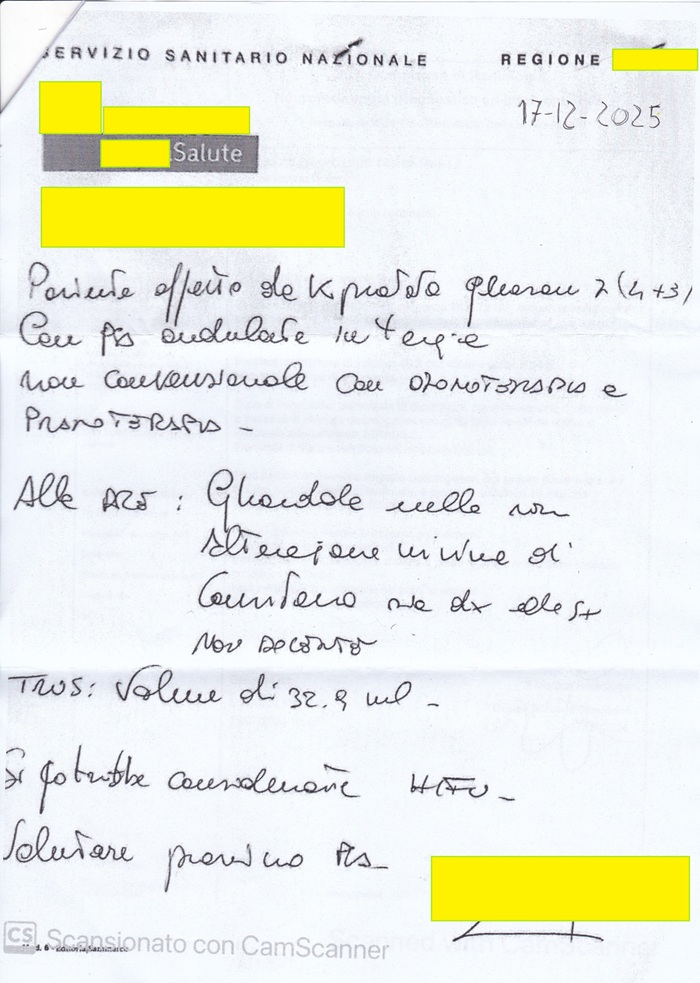 SERVIZIO SANITARIO NAZIONALE REGIONE
17-12-2025
Salute
Paziente affetto da K prostata gleason 7 (4+3)
Con PSA ondulante in terapia
non convenzionale con OZONOTERAPIA e
PRANOTERAPIA -
Alla : Ghiandola nelle non
alterazione di
sia dx che sx
NON
TRUS: Volume di 32.9 ml -
Si potrebbe considerare HIFU -
Valutare prossimo PSA -
CS Scansionato con CamScanner
Scanned with CamScanner